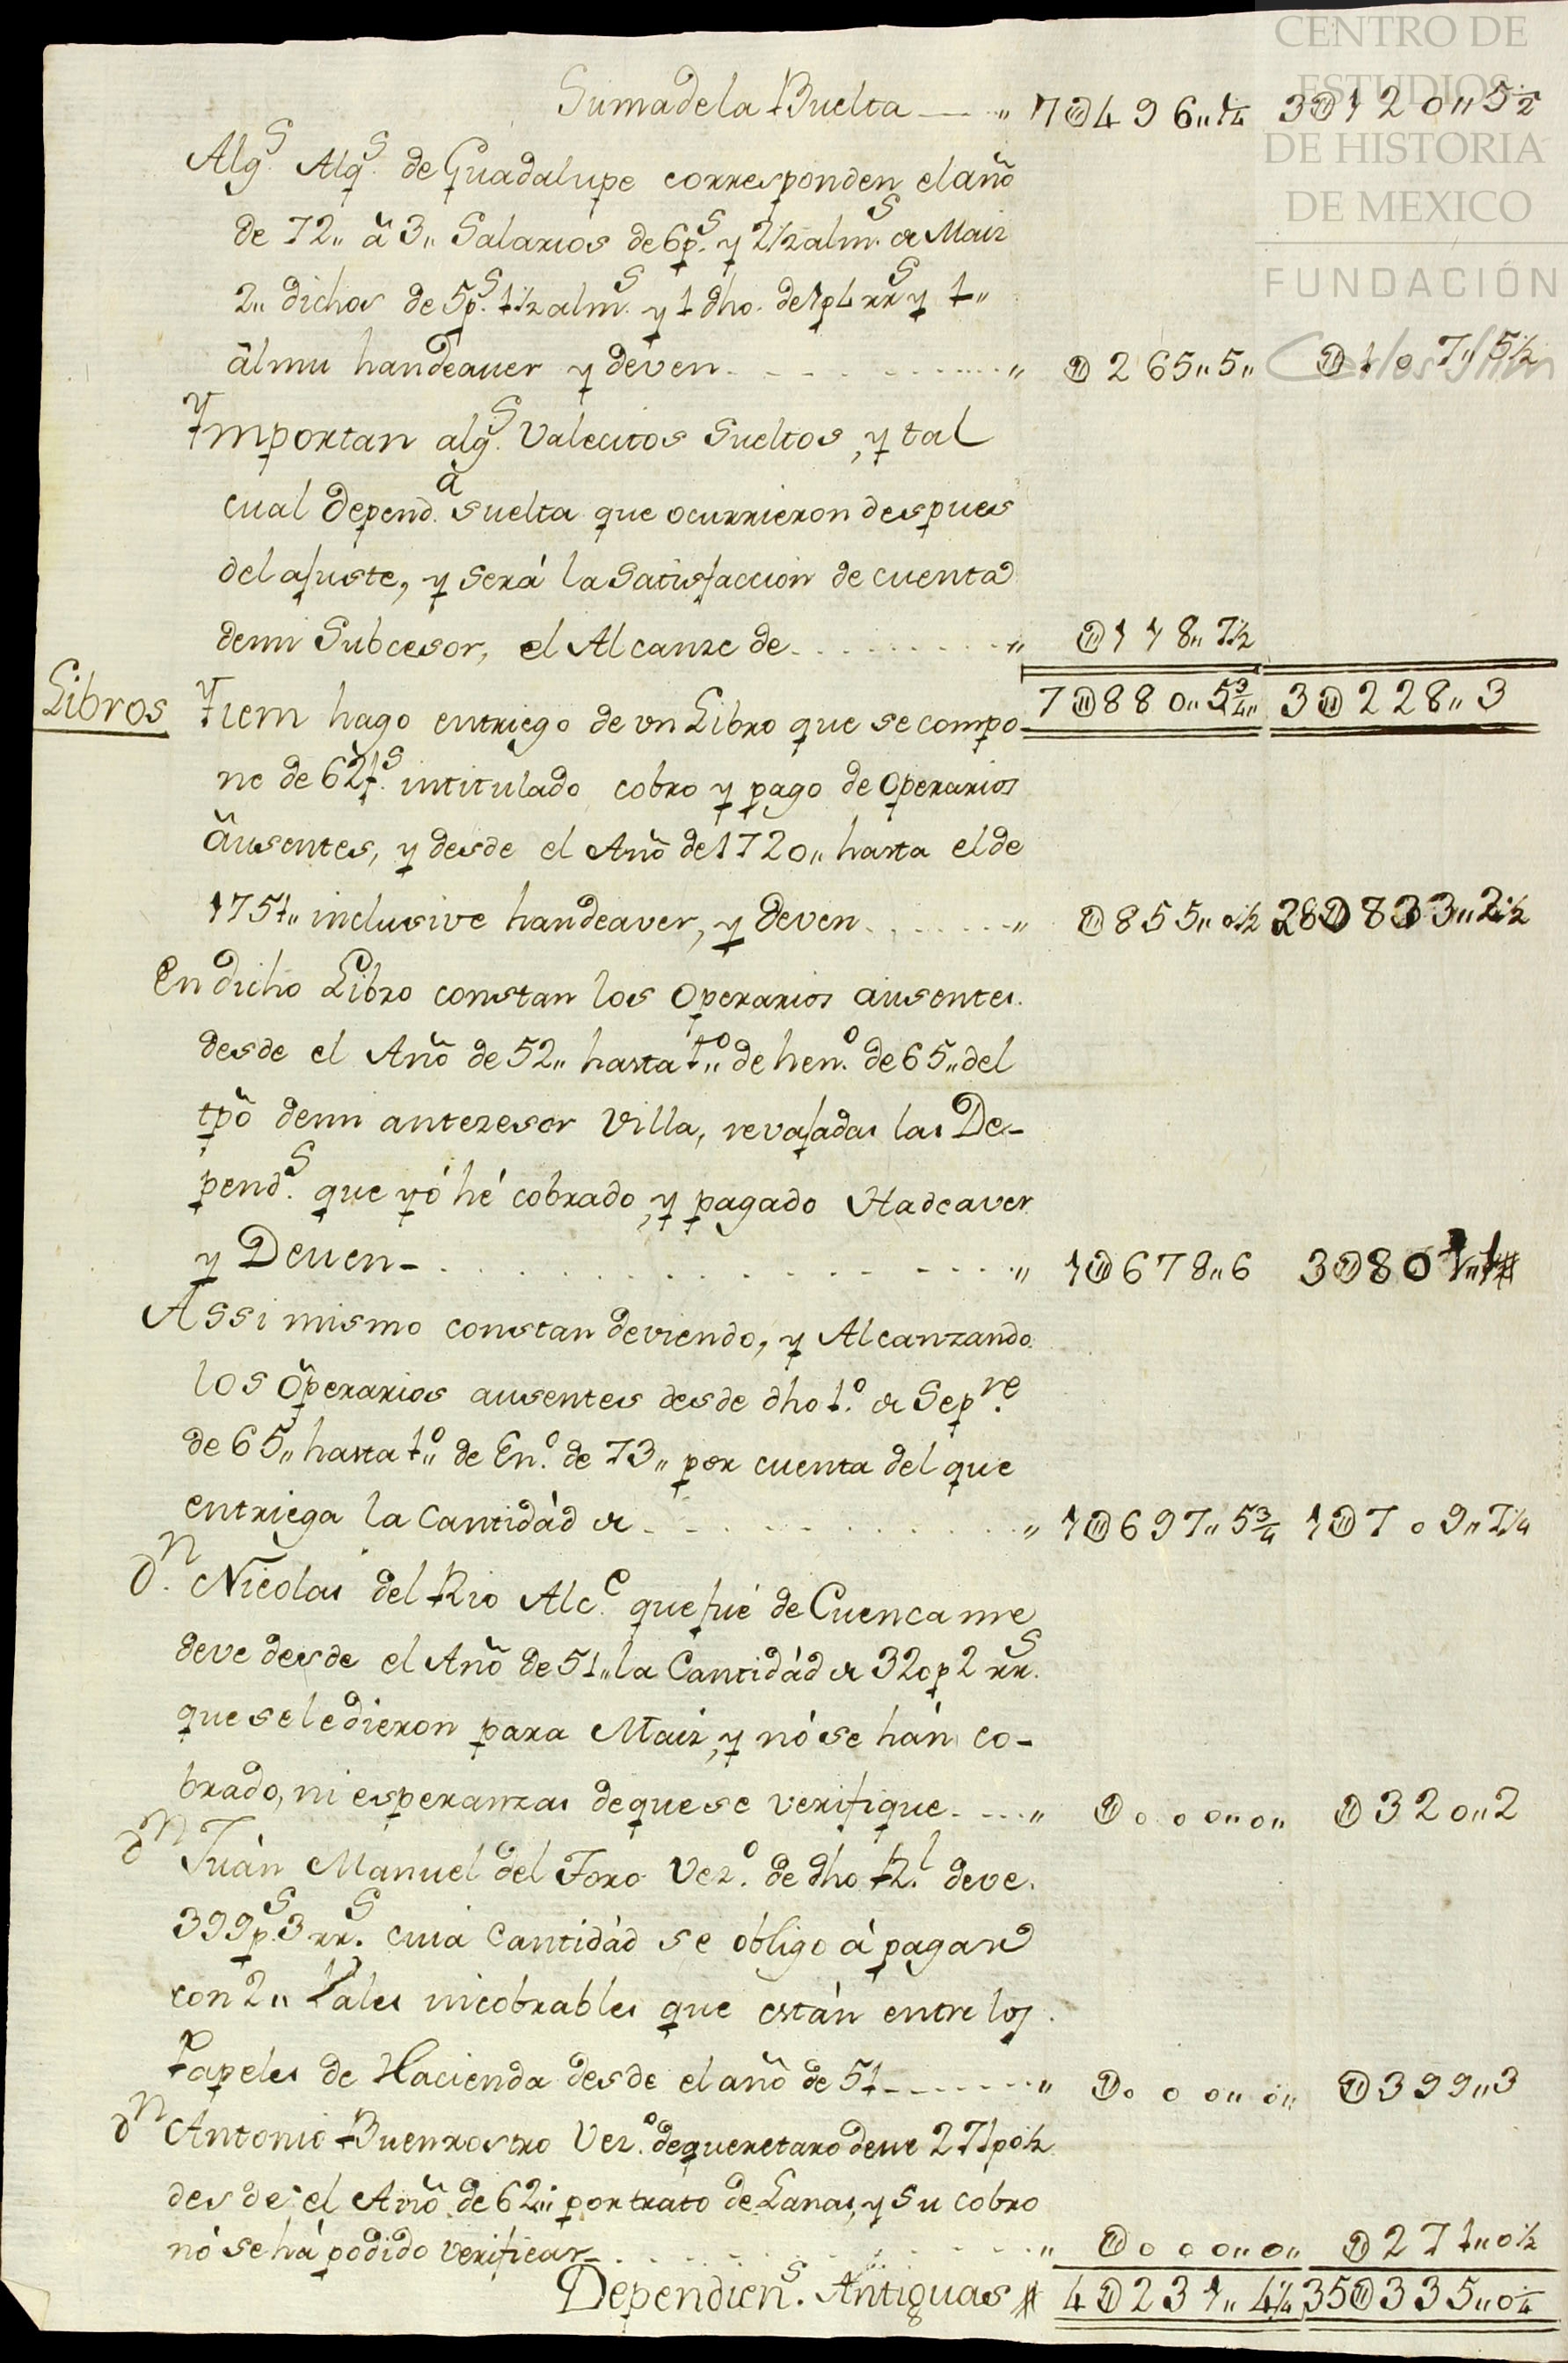 CENTRO DE
ESTUDIOS
DE HISTORIA
DE MEXICO
FUNDACIÓN
Carlos Slim
Suma de la Buelta — " 7U496"1/4 3U120"5 1/2
Alg.s Alq.s de Guadalupe corresponden el año
de 72" â 3" Salarios de 6p.s y 2 1/2 alm.s de Maiz
2" dichos de 5p.s 1 1/2 alm.s y 1 dho. de 4 rr.s y 1"
âlmu handeauer y deven " U265"5" U107"5 1/2
Ymportan alg.s Valecitos Sueltos, y tal
cual Depend.a suelta que ocurrieron despues
del ajuste, y será la Satisfaccion de cuenta
demi Subcesor, el Alcanze de " U118"7 1/2
7U880"5 3/4" 3U228"3
Libros Ytem hago entriego de vn Libro que se compo-
ne de 62f.s intitulado cobro y pago de Operarios
äusentes, y desde el Año de 1720" hasta el de
1751" inclusive handeaver, y deven " U855"0 1/2 28U833"2 1/2
En dicho Libro constan los Operarios ausentes
desde el Año de 52" hasta 1"o de hen.o de 65" del
tpõ demi antezesor Villa, revajadas las De-
pend.s que yó hé cobrado, y pagado Hadeaver
y Deuen- " 1U678"6 3U80
Assi mismo constan deviendo, y Alcanzando
los õperarios ausentes desde dho 1.o de Sep.re
de 65" hasta 1"o de En.o de 73" por cuenta del que
entriega la Cantidád de " 1U697"5 3/4 1U709"7 1/4
D.n Nicolas del Rio Alc.e que fué de Cuencame
deve desde el Año de 51" la Cantidád de 320p 2 rr.s
que se le dieron para Maiz, y nó se hán co-
brado, ni esperanzas de que se verifique " U000"0" U320"2
D.n Juán Manuel del Toro Vez.o de dho Rl. deve
399p.s 3 rr.s cuia Cantidád se óbligo á pagar
con 2" Vales incobrables que están entre los
Papeles de Hacienda desde el año de 51 " U000"0" U399"3
D.n Antonio Buenrostro Vez.o de queretaro deve 271p 0 1/2
desde el Año de 62" por trato de Lanas, y su cobro
nó se há podido verificar " U000"0" U271"0 1/2
Dependien.s Antiguas # 4U231"4 1/4 35U335"0 1/4